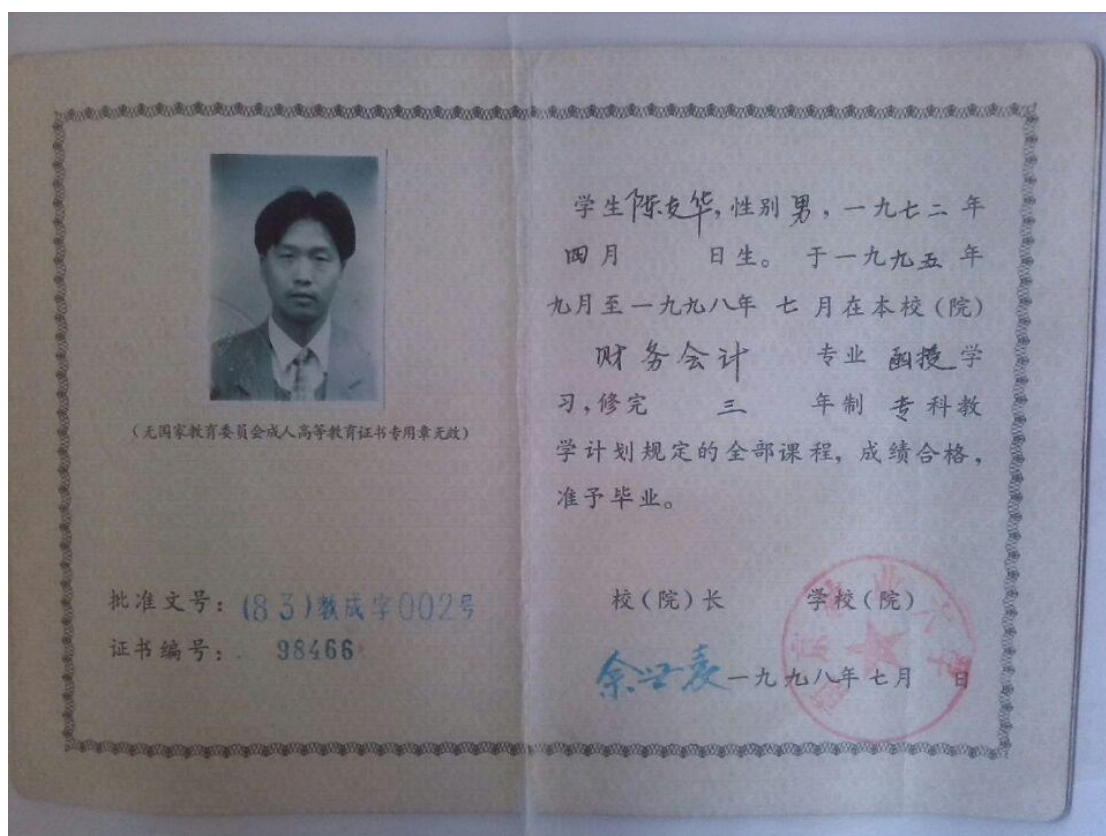 （无国家教育委员会成人高等教育证书专用章无效）
批准文号：(83)教成字002号
证书编号：98466
学生陈友华，性别男，一九七二年
四月 日生。于一九九五年
九月至一九九八年七月在本校（院）
财务会计 专业 函授学
习，修完 三 年制 专科教
学计划规定的全部课程，成绩合格，
准予毕业。
校（院）长 学校（院）
一九九八年七月 日